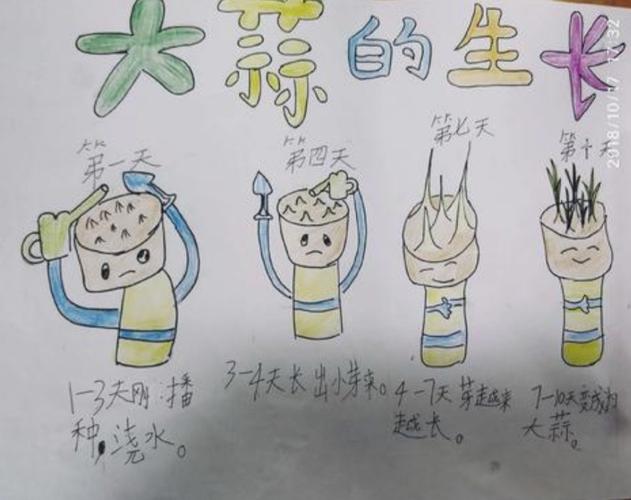 大蒜的生长
2018/10/17 17:32
第一天
第四天
第七天
第十天
1-3天刚播
种,浇水。
3-4天长出小芽来。
4-7天芽越来
越长。
7-10天变成
大蒜。